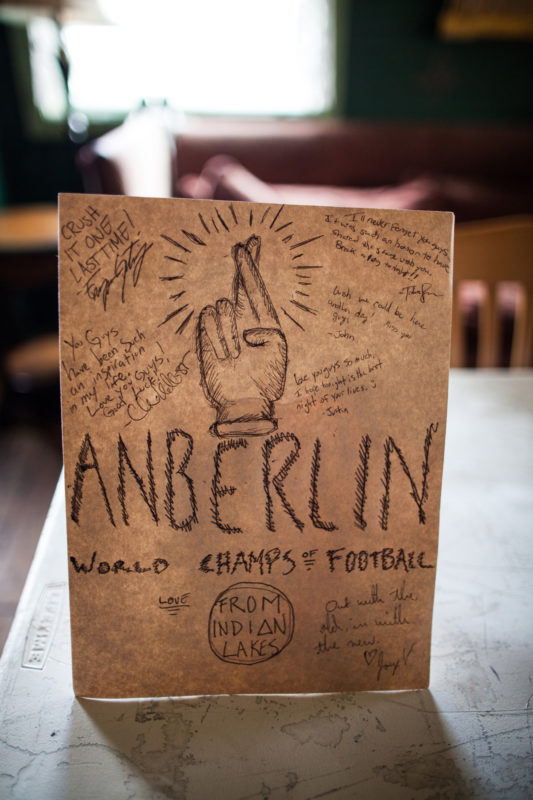 CRUSH
IT ONE
LAST TIME!
You Guys
have been such
an inspiration
in my life.
Love you Guys!
Good luck!
I'll never forget you guys.
It was such an honor to have
shared the stage with you.
Break a leg tonight!!
wish we could be here
another day! Miss you
guys!
-John
Love you guys so much,
I hope tonight is the best
night of your lives.
-Justin
ANBERLIN
WORLD CHAMPS OF FOOTBALL
LOVE
FROM
INDIAN
LAKES
out with the
old, in with
the new.
Joey